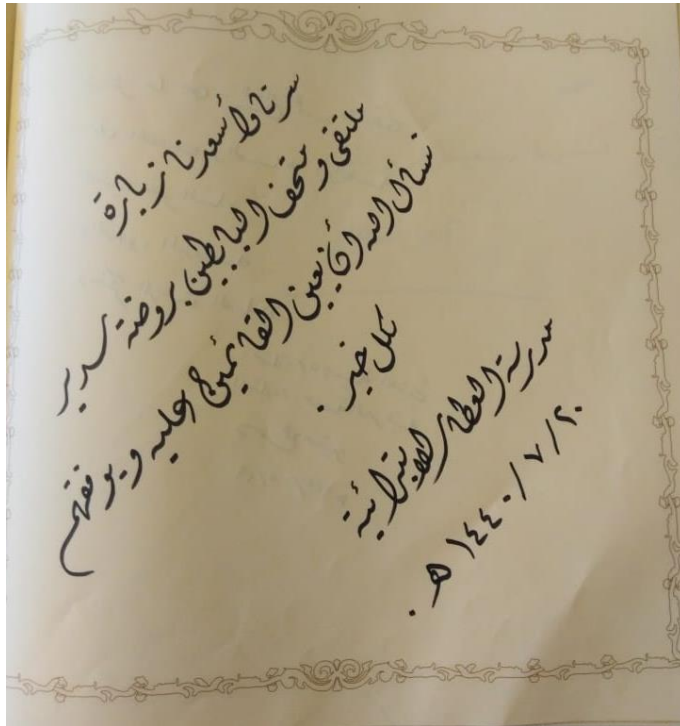 سرنا وأسعدنا زيارة
ملتقى ومتحف الجبابطين بروضة سدير
نسأل الله أن يعين القائمين عليه ويوفقهم
لكل خير.
مدرسة العطار الابتدائية
١٤٤٠/٧/٢٠ هـ.